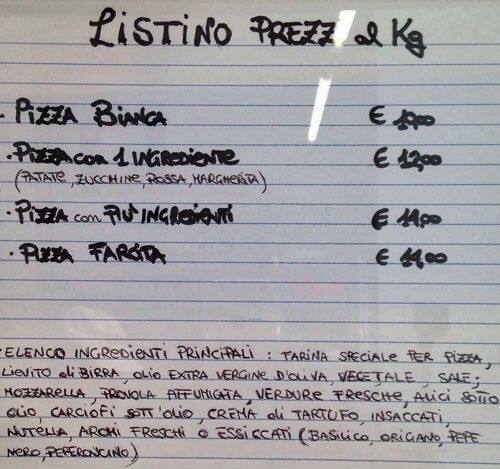 LISTINO PREZZI al Kg
· PIZZA BIANCA € 10,00
· PIZZA con 1 INGREDIENTE € 12,00
(PATATE, ZUCCHINE, ROSSA, MARGHERITA)
· PIZZA con PIU' INGREDIENTI € 14,00
· PIZZA FARCITA € 14,00
· ELENCO INGREDIENTI PRINCIPALI : FARINA SPECIALE PER PIZZA,
LIEVITO di BIRRA, OLIO EXTRA VERGINE D'OLIVA, VEGETALE, SALE,
MOZZARELLA, PROVOLA AFFUMICATA, VERDURE FRESCHE, ALICI SOTTO
OLIO, CARCIOFI SOTT'OLIO, CREMA di TARTUFO, INSACCATI,
NUTELLA, AROMI FRESCHI O ESSICCATI (BASILICO, ORIGANO, PEPE
NERO, PEPERONCINO)